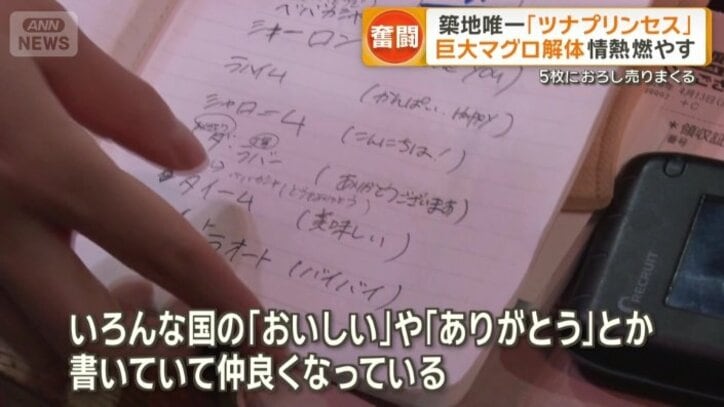 ANN
NEWS
奮闘
築地唯一「ツナプリンセス」
巨大マグロ解体 情熱燃やす
5枚におろし売りまくる
ライム
(かんぱい、HAPPY)
シャローム
(こんにちは!)
ラバー
(ありがとうございまあ)
タイーム
(美味しい)
トラオート (バイバイ)
領収証
RECRUIT
いろんな国の「おいしい」や「ありがとう」とか
書いていて仲良くなっている